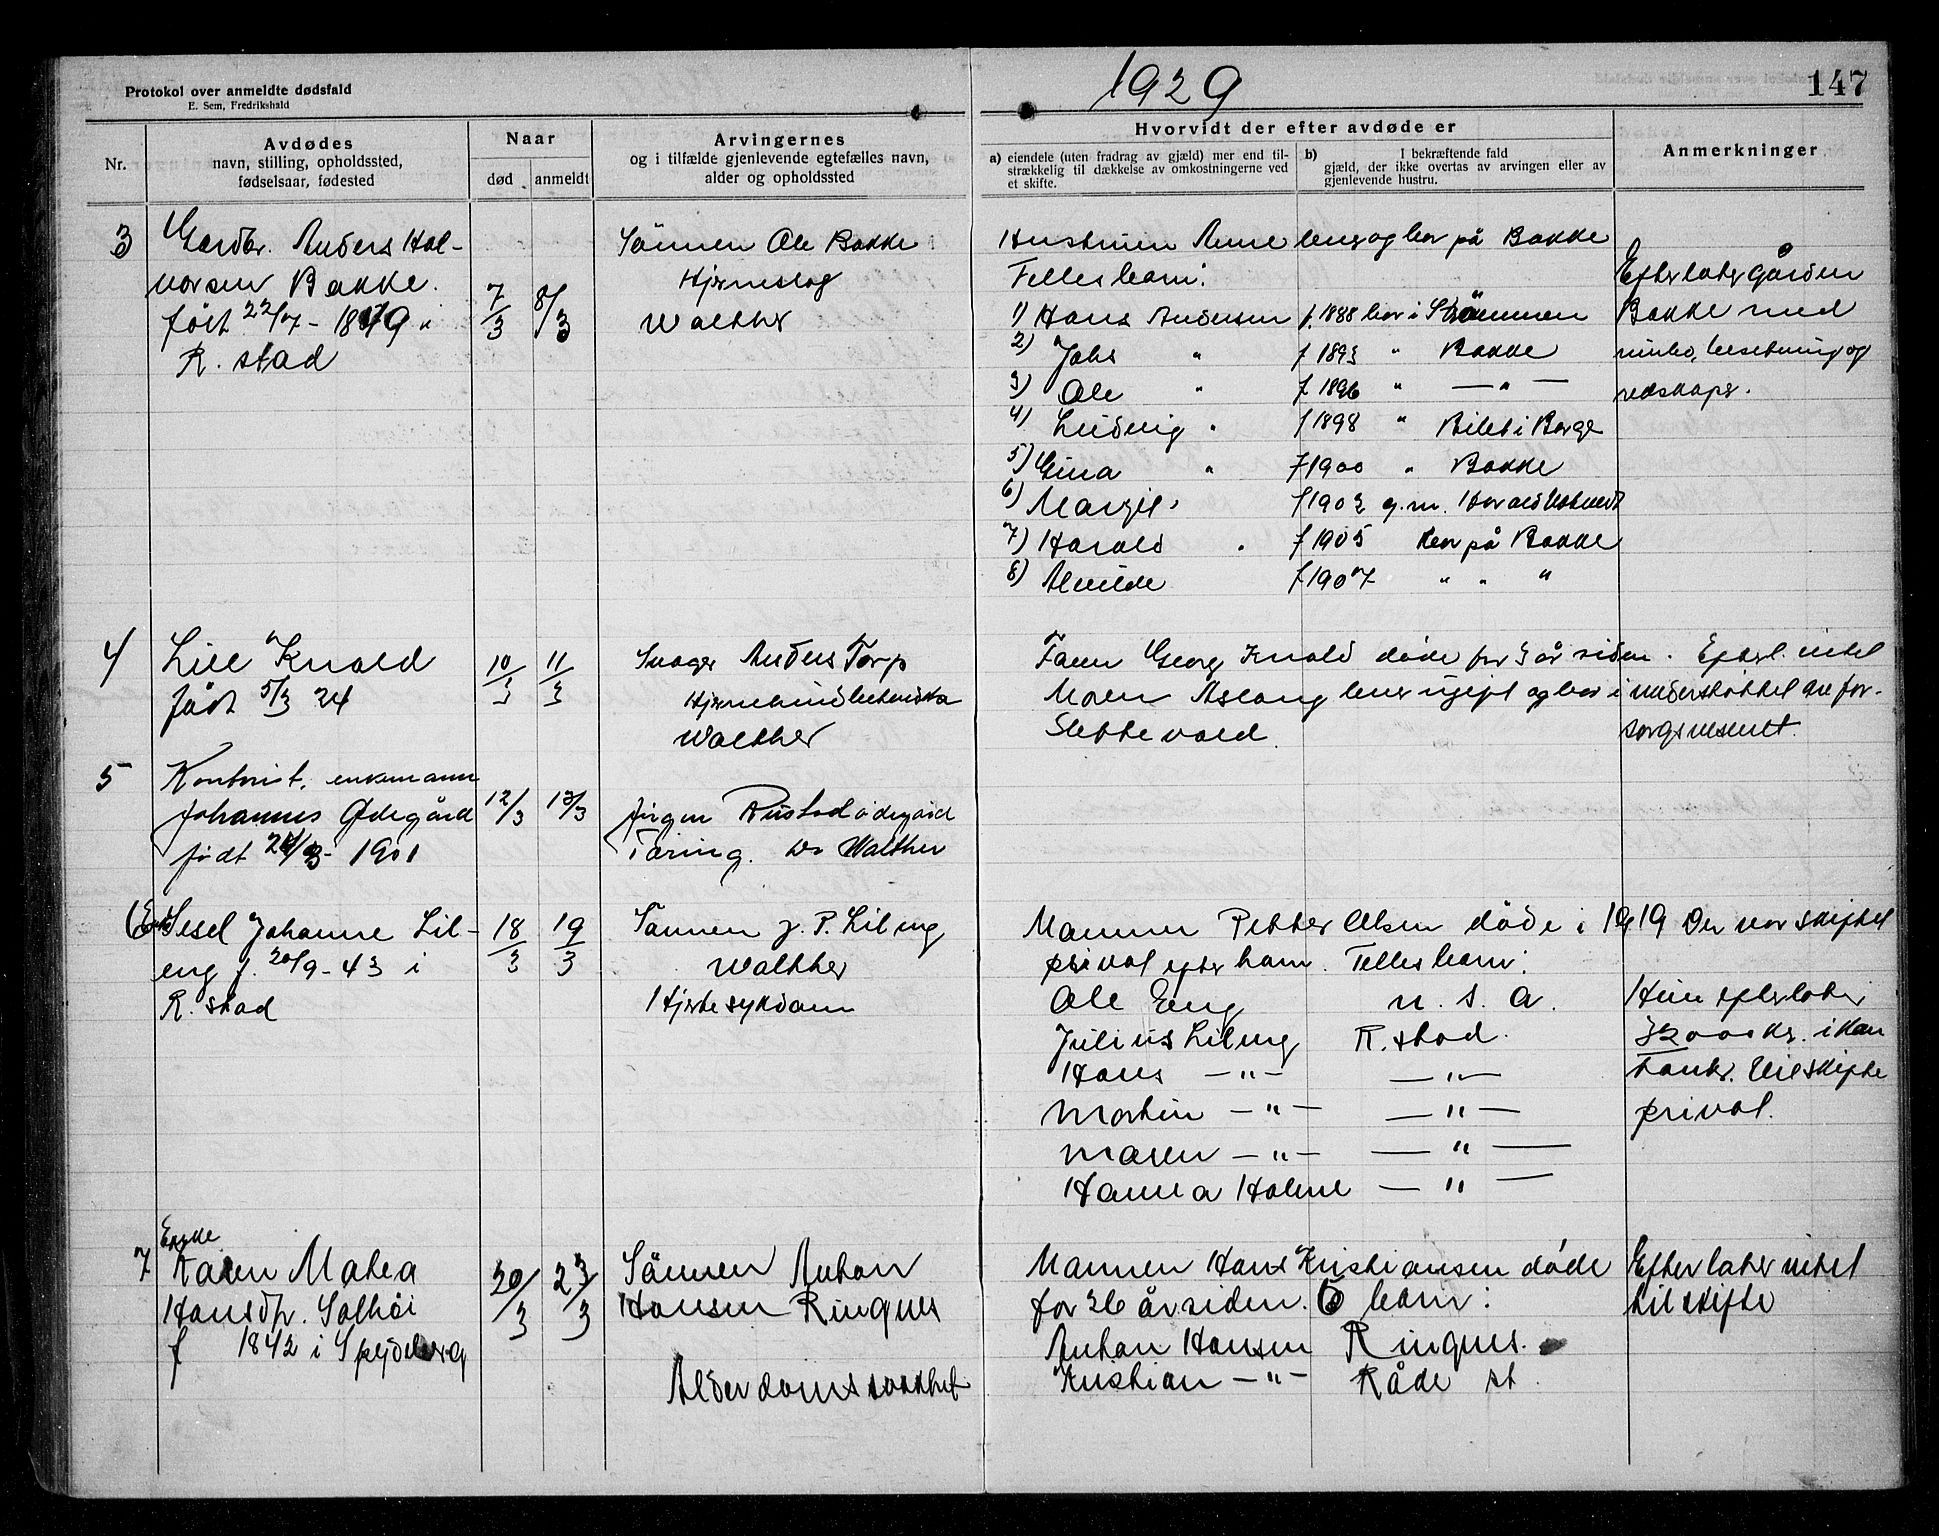 Protokol over anmeldte dødsfald
E. Sem, Fredrikshald
1929
147
Nr.
Avdødes
navn, stilling, opholdssted,
fødselsaar, fødested
Naar
død
anmeldt
Arvingernes
og i tilfælde gjenlevende egtefælles navn,
alder og opholdssted
Hvorvidt der efter avdøde er
a) eiendele (uten fradrag av gjæld) mer end til-
strækkelig til dækkelse av omkostningerne ved
et skifte.
b) I bekræftende fald
gjæld, der ikke overtas av arvingen eller av
gjenlevende hustru.
Anmerkninger
3
Gardbr. Anders Hal-
vorsen Bakke.
født 22/7 - 1879 i
R. stad
7/3
8/3
Sønnen Ole Bakke
Hjerneslag
Walther
Hustruen Anne lever og bor på Bakke
Fellesbarn:
1) Hans Andersen f. 1888 bor i Strømmen
2) Johs " f 1893 " Bakke
3) Ole " f 1896 " — " —
4) Ludvig " f 1898 " Bilet i Borge
5) Gina " f 1900 " Bakke
6) Margit " f 1902 g.m. Harald
7) Harald " f 1905 bor på Bakke
8) Alvilde f 1907 " " "
Efterlater gården
Bakke med
innbo, besetning og
redskaper.
4
Lill Knold
født 5/3 24
10/3
11/3
Svoger Anders Torp
Walther
Faren Georg Knold døde for 3 år siden. Efterl. intet
Moren Aslaug lever ugift og bor i understøttet av for-
Slettevold.
sorgsvesenet.
5
Kontorist, enkemann
Johannes Ødegård
født 24/3 - 1901
12/3
13/3
Jørgen Rustad Ødegård
Tæring. Dr Walther
6
Enke Sesel Johanne Lil-
eng f. 20/9 - 43 i
R. stad
18/3
19/3
Sønnen J. P. Lileng
Walther
Hjertesykdom
Mannen Petter Olsen døde i 1919 Der var skiftet
privat efter ham. Fellesbarn:
Ole Eng U. S. A.
Julius Lileng R. stad.
Hans — " — — " —
Martin — " — — " —
Maren — " — — " —
Hanna Holene — " —
Hun efterlater
kr. i kon
tanter. Vil skifte
privat.
7
Enke
Karen Matea
Hansdtr. Solhøi
f 1842 i Spydeberg
20/3
23/3
Sønnen Anton
Hansen Ringnes
Alderdomssvakhet
Mannen Hans Kristiansen døde
for 36 år siden. 6 barn:
Anton Hansen Ringnes.
Kristian — " — Råde st.
Efterlater intet
til skifte